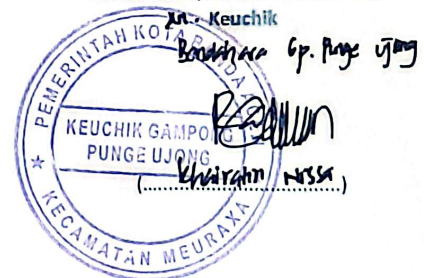 An. Keuchik
Bendahara Gp. Punge Ujong
PEMERINTAH KOTA BANDA ACEH
KEUCHIK GAMPONG
PUNGE UJONG
(Khairatin Nissa)
KECAMATAN MEURAXA